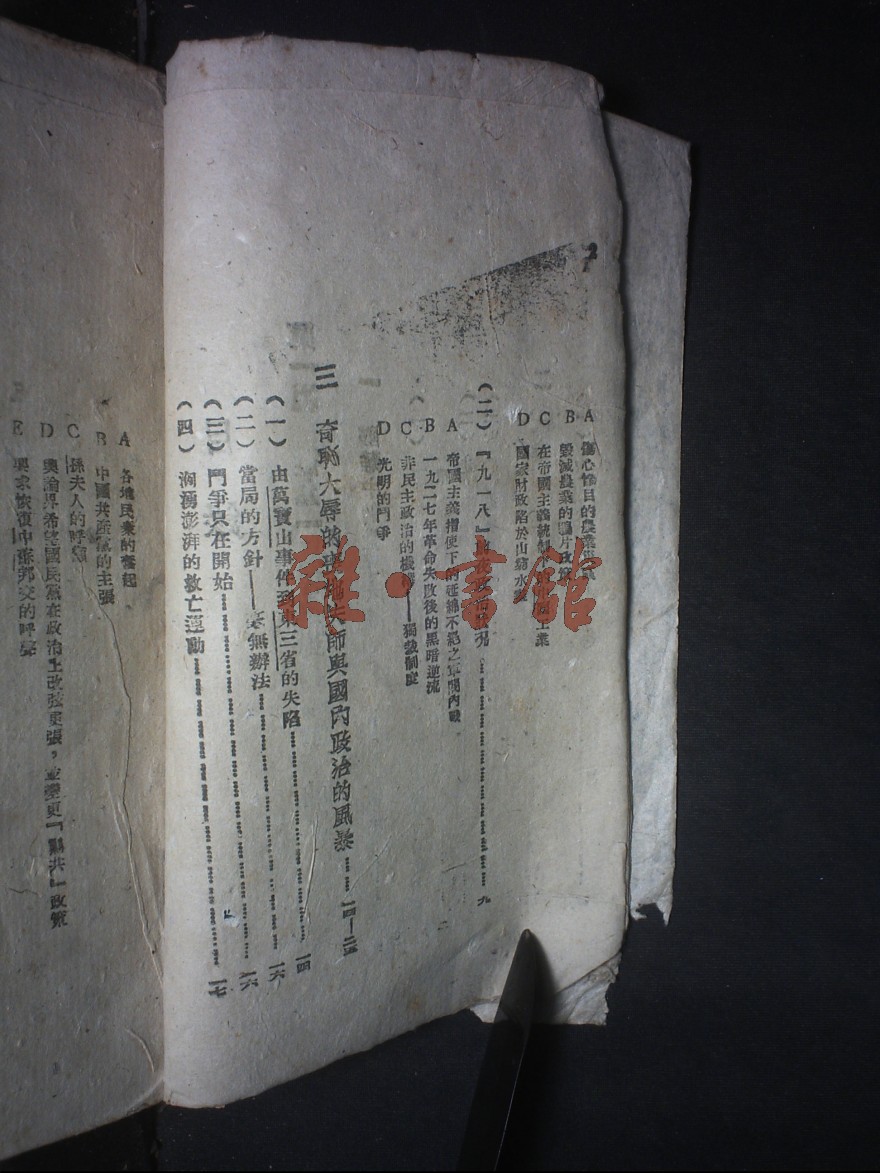 A 傷心慘目的農業
B 毀滅農業的鴉片政策
C 在帝國主義統制 工業
D 國家財政陷於山窮水
(二)『九一八』 九
A 帝國主義指使下的延綿不絕之軍閥內戰
B 一九二七年革命失敗後的黑暗逆流
C 非民主政治的機 ——獨裁制度
D 光明的鬥爭
三 奇恥大辱的 失師與國內政治的風暴……一四—二五
(一)由萬寶山事件到東三省的失陷……一四
(二)當局的方針——毫無辦法……一六
(三)鬥爭只在開始……一六
(四)洶湧澎湃的救亡運動……一七
A 各地民衆的奮起
B 中國共產黨的主張
C 孫夫人的呼籲
D 輿論界希望國民黨在政治上改弦更張,並變更『剿共』政策
E 要求恢復中蘇邦交的呼聲
雜·書館